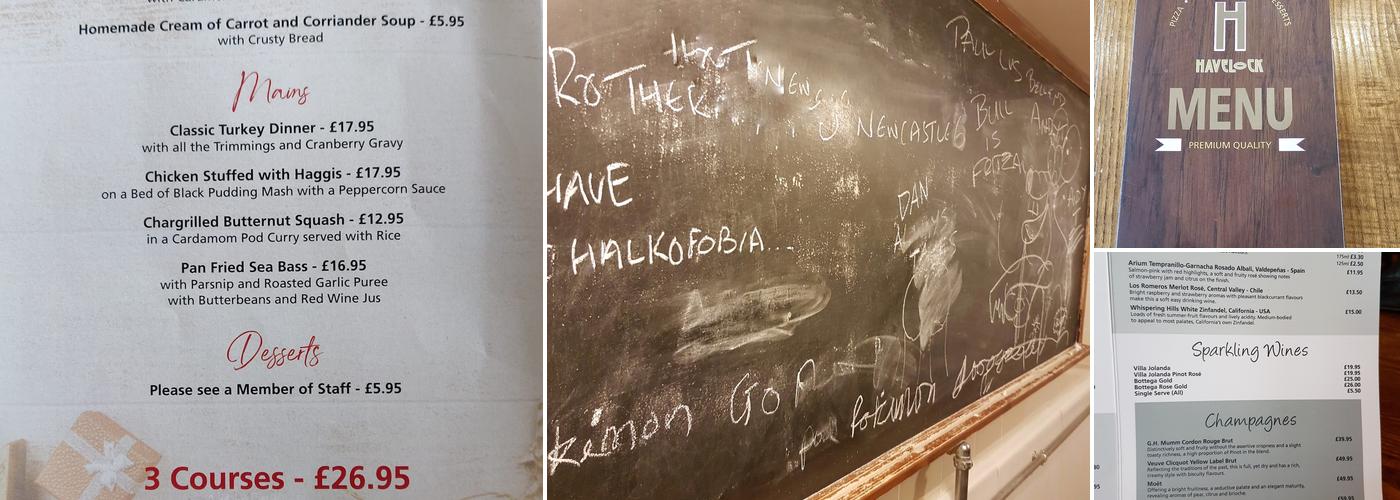 Homemade Cream of Carrot and Corriander Soup - £5.95
with Crusty Bread
Mains
Classic Turkey Dinner - £17.95
with all the Trimmings and Cranberry Gravy
Chicken Stuffed with Haggis - £17.95
on a Bed of Black Pudding Mash with a Peppercorn Sauce
Chargrilled Butternut Squash - £12.95
in a Cardamom Pod Curry served with Rice
Pan Fried Sea Bass - £16.95
with Parsnip and Roasted Garlic Puree
with Butterbeans and Red Wine Jus
Desserts
Please see a Member of Staff - £5.95
3 Courses - £26.95
NEWCASTLE
BULL
IS
HAVE
DAN
HALKOFOBIA...
Pokemon
PIZZA
DESSERTS
H
HAVELOCK
MENU
PREMIUM QUALITY
175ml £3.30
Arium Tempranillo-Garnacha Rosado Albali, Valdepeñas - Spain 125ml £2.50
Salmon-pink with red highlights, a soft and fruity rosé showing notes £11.95
of strawberry jam and citrus on the finish.
Los Romeros Merlot Rosé, Central Valley - Chile £13.50
Bright raspberry and strawberry aromas with pleasant blackcurrant flavours
make this a soft easy drinking wine.
Whispering Hills White Zinfandel, California - USA £15.00
Loads of fresh summer-fruit flavours and lively acidity. Medium-bodied
to appeal to most palates, California's own Zinfandel.
Sparkling Wines
Villa Jolanda £19.95
Villa Jolanda Pinot Rosé £19.95
Bottega Gold £25.00
Bottega Rose Gold £26.00
Single Serve (All) £5.50
Champagnes
G.H. Mumm Cordon Rouge Brut £39.95
Distinctively soft and fruity without the assertive crispness and a slight
toasty richness, a high proportion of Pinot in the blend.
Veuve Clicquot Yellow Label Brut £49.95
Reflecting the traditions of the past, this is full, yet dry and has a rich,
creamy style with biscuity flavours.
Moët £49.95
Offering a bright fruitiness, a seductive palate and an elegant maturity,
revealing aromas of pear, citrus and brioche.
£59.95